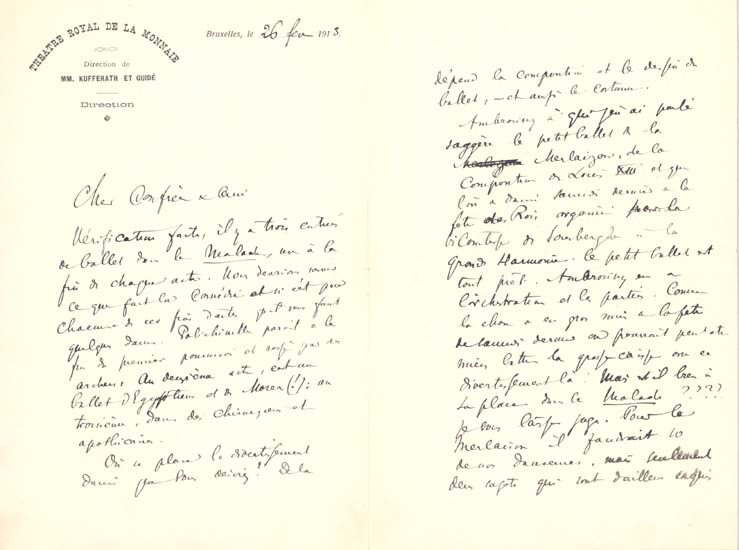 THÉATRE ROYAL DE LA MONNAIE
Direction de
MM. KUFFERATH ET GUIDÉ
Direction
Bruxelles, le 26 fev 1913.
Cher Confrère & Ami
Vérification faite, il y a trois entrées
de ballet dans le Malade, une à la
fin de chaque acte. Nous devrions savoir
ce que fait la Comédie et si c'est pour
chacune de ces fins d'actes qu'il vous faut
quelques danses. Polichinelle parait à la
fin du premier poursuivi et rossé par des
archers; Au deuxième acte, c'est un
ballet d'Egyptiens et de Mores (!); au
troisième, danse des chirurgiens et
apothicaires.
Où se place le divertissement
dansé que vous désirez? De là
dépend la composition et le dessin du
ballet, – et aussi le costume.
Ambrosiny à qui j'en ai parlé
suggère le petit ballet de la
Merlaizon, de la
Composition de Louis XIII et que
l'on a dansé samedi dernier à la
fête des Rois organisée pour la
Vicomtesse de à la
Grande Harmonie. Ce petit ballet est
tout prêt. Ambrosiny en a
l'orchestration et les parties. Comme
la chose a eu gros succès à la fête
de samedi dernier on pourrait peut-être
mieux battre la grosse caisse sur ce
divertissement là. Mais est-il bien à
sa place dans le Malade ????
Je vous laisse juge. Pour le
Merlaison il faudrait 10
de nos danseuses, mais seulement
deux sujets qui sont d'ailleurs exquis